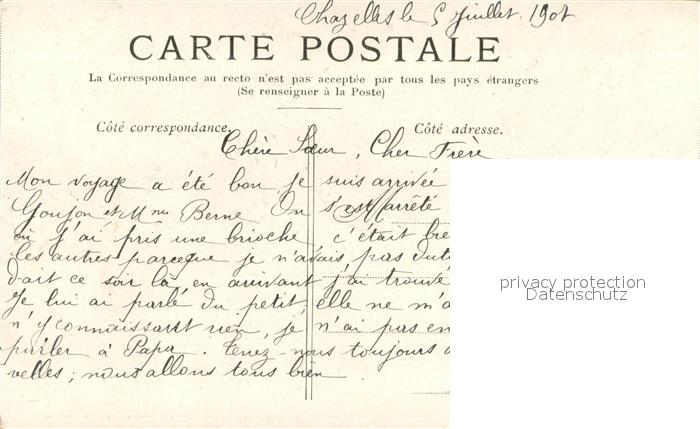 Chazelles le 5 Juillet 190
CARTE POSTALE
La Correspondance au recto n'est pas acceptée par tous les pays étrangers
(Se renseigner à la Poste)
Côté correspondance.
Côté adresse.
Chère Sœur, Cher Frère
Mon voyage a été bon je suis arrivée
Goujon et Mme Berne On s'est arrêté
où j'ai pris une brioche, c'était bie
les autres parceque je n'avais pas
dait ce soir là en arrivant j'ai trouvé
Je lui ai parlé du petit, elle ne m'a
n'y connaissant rien, je n'ai pas en
parler à Papa. Tenez-nous toujours
velles; nous allons tous bien
privacy protection
Datenschutz